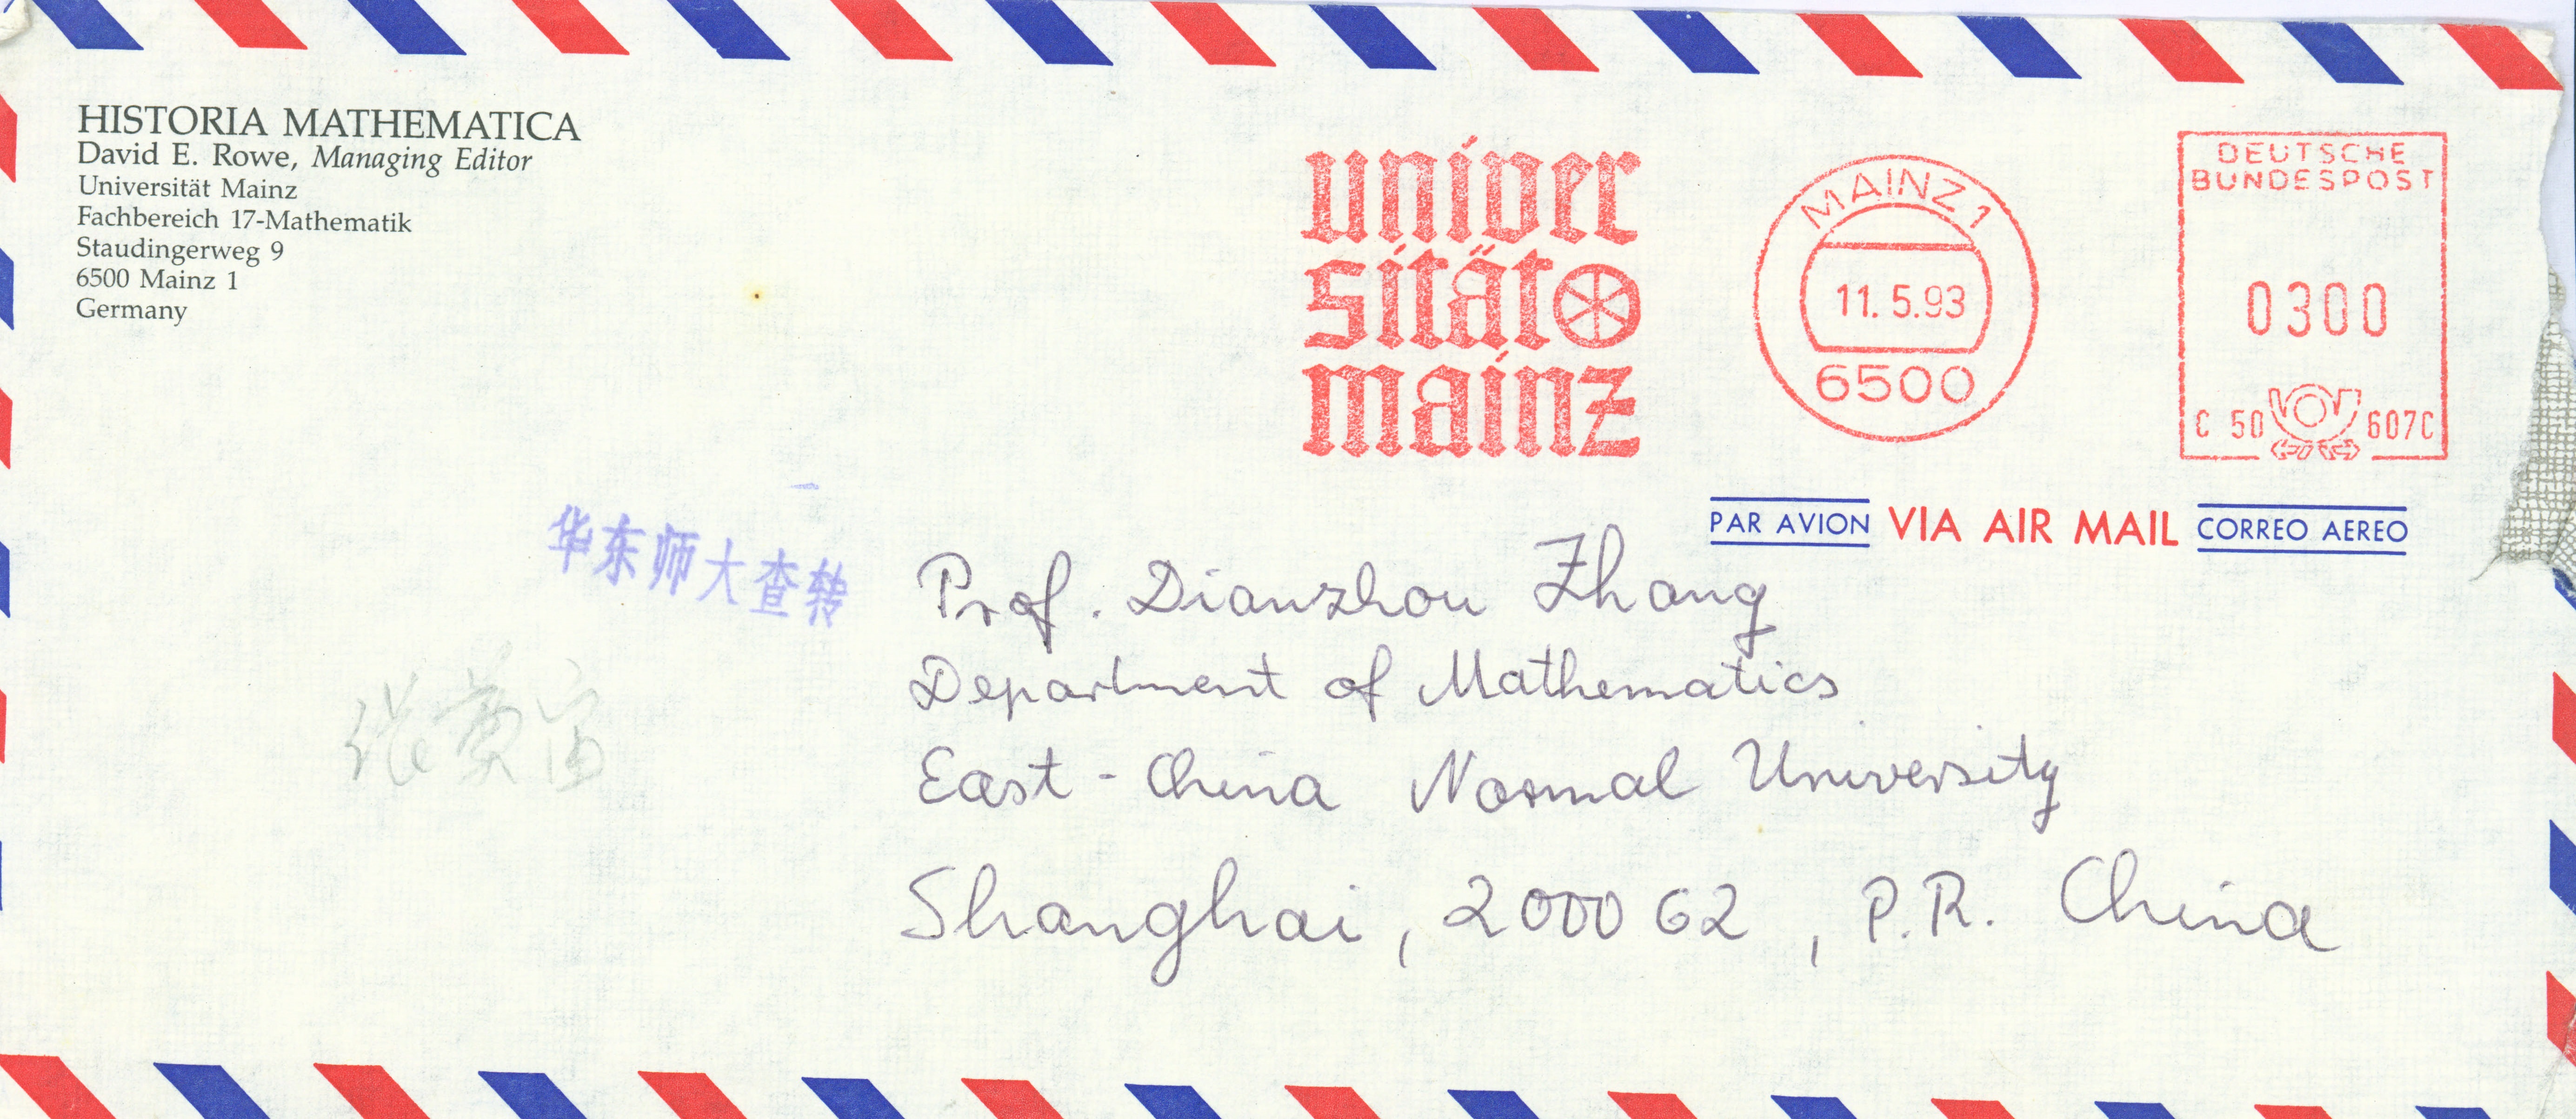 HISTORIA MATHEMATICA
David E. Rowe, Managing Editor
Universität Mainz
Fachbereich 17-Mathematik
Staudingerweg 9
6500 Mainz 1
Germany
univer
sität
mainz
MAINZ 1
11.5.93
6500
DEUTSCHE
BUNDESPOST
0300
C 50 607C
PAR AVION VIA AIR MAIL CORREO AEREO
华东师大查转
Prof. Dianzhou Zhang
Department of Mathematics
East-China Normal University
Shanghai, 200062, P.R. China
张奠宙